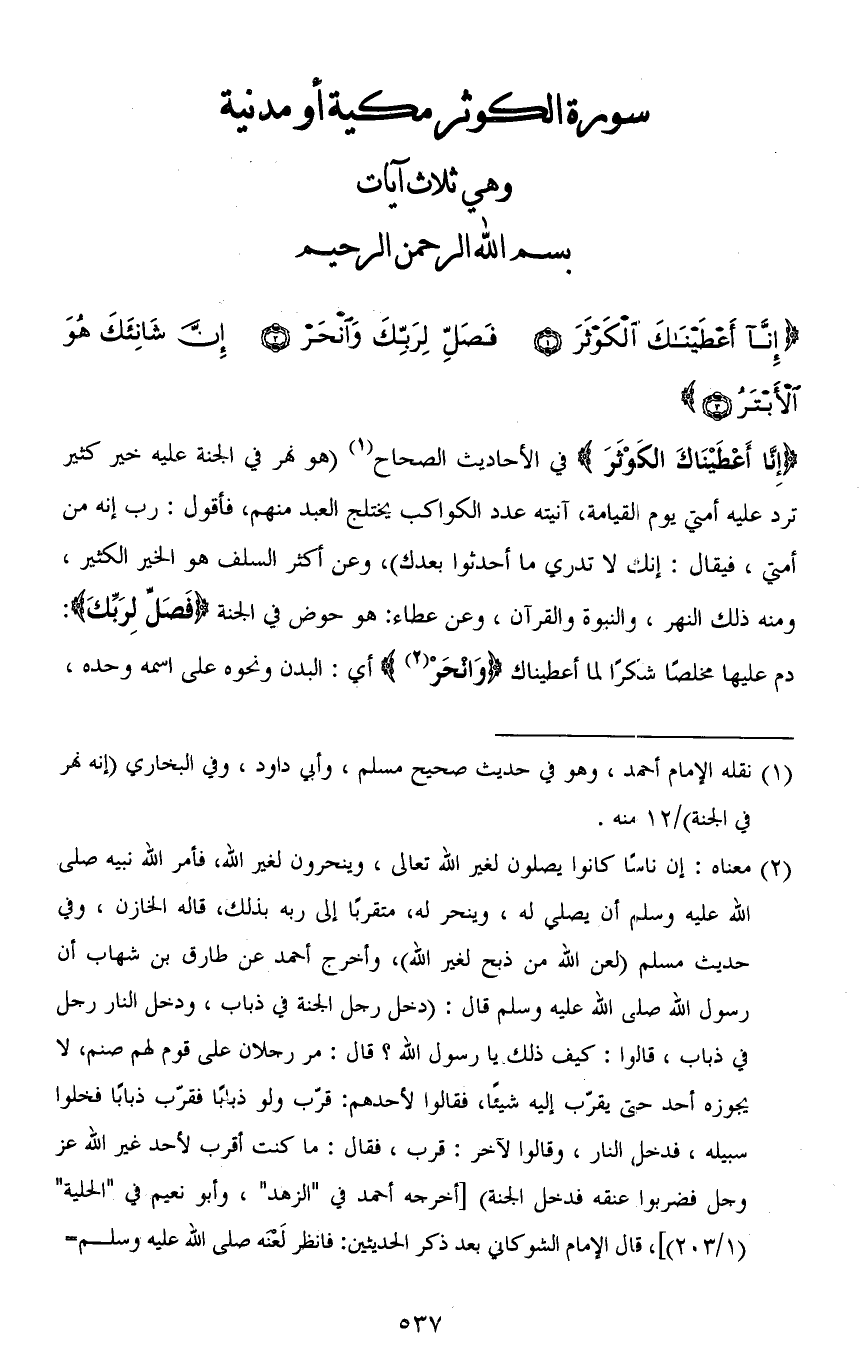 سورة الكوثر مكية أو مدنية
وهي ثلاث آيات
بسم الله الرحمن الرحيم
﴿إِنَّآ أَعْطَيْنَـٰكَ ٱلْكَوْثَرَ ۝١ فَصَلِّ لِرَبِّكَ وَٱنْحَرْ ۝٢ إِنَّ شَانِئَكَ هُوَ
ٱلْأَبْتَرُ ۝٣﴾
﴿إِنَّا أَعْطَيْنَاكَ الكَوْثَرَ﴾ في الأحاديث الصحاح(١) (هو نهر في الجنة عليه خير كثير
ترد عليه أمتي يوم القيامة، آنيته عدد الكواكب يختلج العبد منهم، فأقول : رب إنه من
أمتي ، فيقال : إنك لا تدري ما أحدثوا بعدك)، وعن أكثر السلف هو الخير الكثير ،
ومنه ذلك النهر ، والنبوة والقرآن ، وعن عطاء: هو حوض في الجنة ﴿فَصَلِّ لِرَبِّكَ﴾:
دم عليها مخلصًا شكرًا لما أعطيناك ﴿وَانْحَرْ(٢)﴾ أي : البدن ونحوه على اسمه وحده ،
(١) نقله الإمام أحمد ، وهو في حديث صحيح مسلم ، وأبي داود ، وفي البخاري (إنه نهر
في الجنة)/١٢ منه .
(٢) معناه : إن ناسًا كانوا يصلون لغير الله تعالى ، وينحرون لغير الله، فأمر الله نبيه صلى
الله عليه وسلم أن يصلي له ، وينحر له، متقربًا إلى ربه بذلك، قاله الخازن ، وفي
حديث مسلم (لعن الله من ذبح لغير الله)، وأخرج أحمد عن طارق بن شهاب أن
رسول الله صلى الله عليه وسلم قال : (دخل رجل الجنة في ذباب ، ودخل النار رجل
في ذباب ، قالوا : كيف ذلك يا رسول الله ؟ قال : مر رجلان على قوم لهم صنم، لا
يجوزه أحد حتى يقرّب إليه شيئًا، فقالوا لأحدهم: قرّب ولو ذبابًا فقرّب ذبابًا فخلوا
سبيله ، فدخل النار ، وقالوا لآخر : قرب ، فقال : ما كنت أقرب لأحد غير الله عز
وجل فضربوا عنقه فدخل الجنة) [أخرجه أحمد في "الزهد" ، وأبو نعيم في "الحلية"
(٢٠٣/١)]، قال الإمام الشوكاني بعد ذكر الحديثين: فانظر لَعْنَه صلى الله عليه وسلم=
٥٣٧